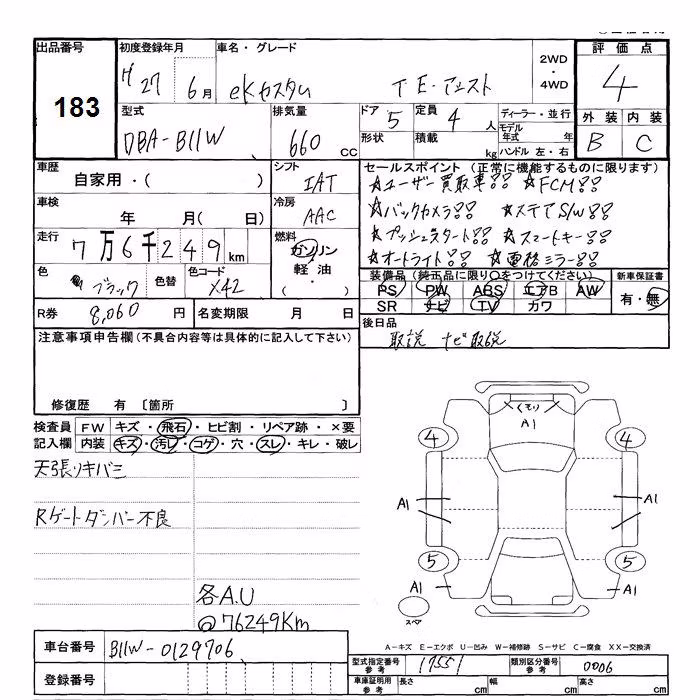 出品番号 初度登録年月 車名・グレード 2WD・4WD 評価点
183 H27 6月 eKカスタム T E・アシスト 4
型式 排気量 ドア 定員 ディーラー・並行 外装 内装
DBA-B11W 660 CC 5 4人 モデル年式 年 B C
形状 積載 kg ハンドル 左・右
車歴 シフト セールスポイント(正常に機能するものに限ります)
自家用・( ) IAT ☆ユーザー買取車!! ☆FCM!!
車検 冷房 ☆バックカメラ!! ☆ステアS/W!!
年 月( 日) AAC
走行 燃料 ☆プッシュスタート!! ☆スマートキー!!
7万6千249km ガソリン・軽油・ ☆オートライト!! ☆電格ミラー!!
色 色替 色コード 装備品(純正品に限り○をつけてください) 新車保証書
ブラック X42 PS PW ABS エアB AW 有・無
SR ナビ TV カワ
R券 8,060円 名変期限 月 日 後日品
取説 ナビ取説
注意事項申告欄(不具合内容等は具体的に記入して下さい)
修復歴 有 〔箇所 〕
検査員 FW キズ・飛石・ヒビ割・リペア跡・×要
記入欄 内装 キズ・汚レ・コゲ・穴・スレ・キレ・破レ
天張リキバミ
Rゲートダンパー不良
各A.U
@76249Km
くもり
A1
4 4
A1 A1
5 5
A1 A1
スペア
A-キズ E-エクボ U-凹み W-補修跡 S-サビ C-腐食 XX-交換済
車台番号 B11W-0129706 型式指定番号 参考 17551 類別区分番号 参考 0006
登録番号 車庫証明用 参考 長さ cm 幅 cm 高さ cm